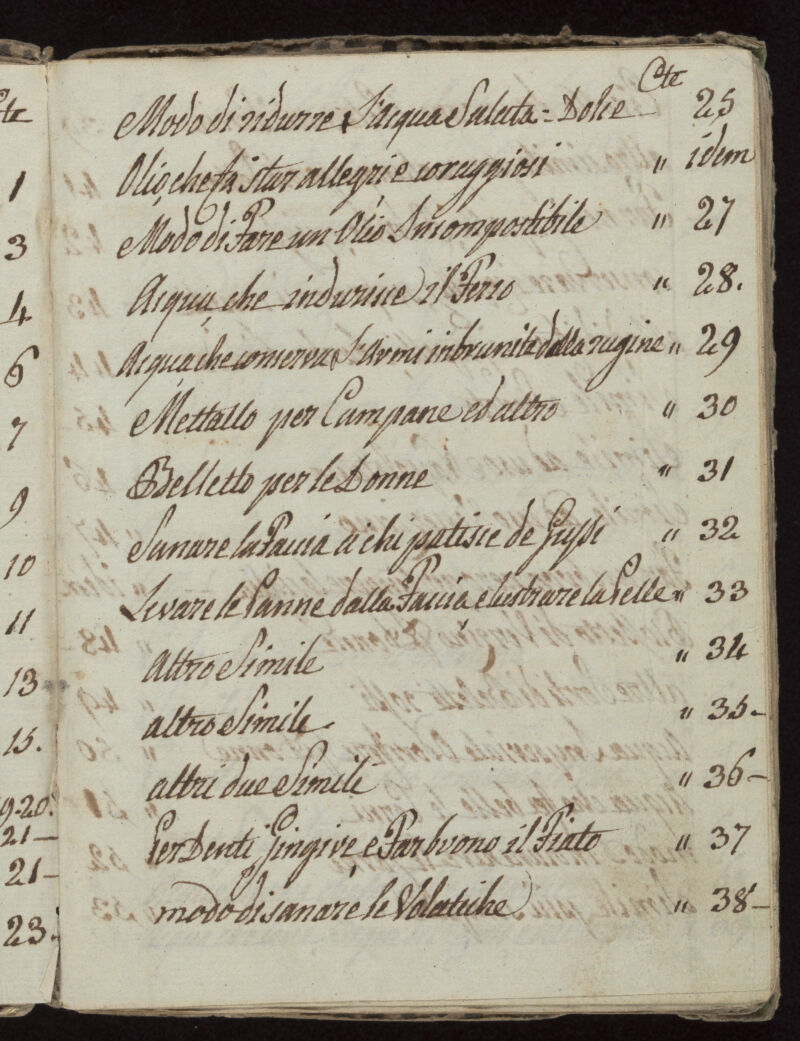 Cte
1
3
4
6
7
9
10
11
13
15.
19-20.
21-
21-
23.
Cte
Modo di ridurre L'acqua Salata = Dolce 25
Olio che fa star allegri e coraggiosi " idem
Modo di Fare un Olio Incompostibile " 27
Acqua che indurisce il Ferro " 28.
Acqua che conserva L'Armi inbrunite dalla rugine " 29
Mettallo per Campane ed altro " 30
Belletto per le Donne " 31
Sanare la Faccia a chi patisce de " 32
Levare le Panne dalla Faccia, e lustrare la Pelle " 33
Altro Simile " 34
altro Simile " 35-
altri due Simili " 36-
Per Denti Gingive e Far buono il Fiato " 37
modo di sanare le Volatiche " 38-